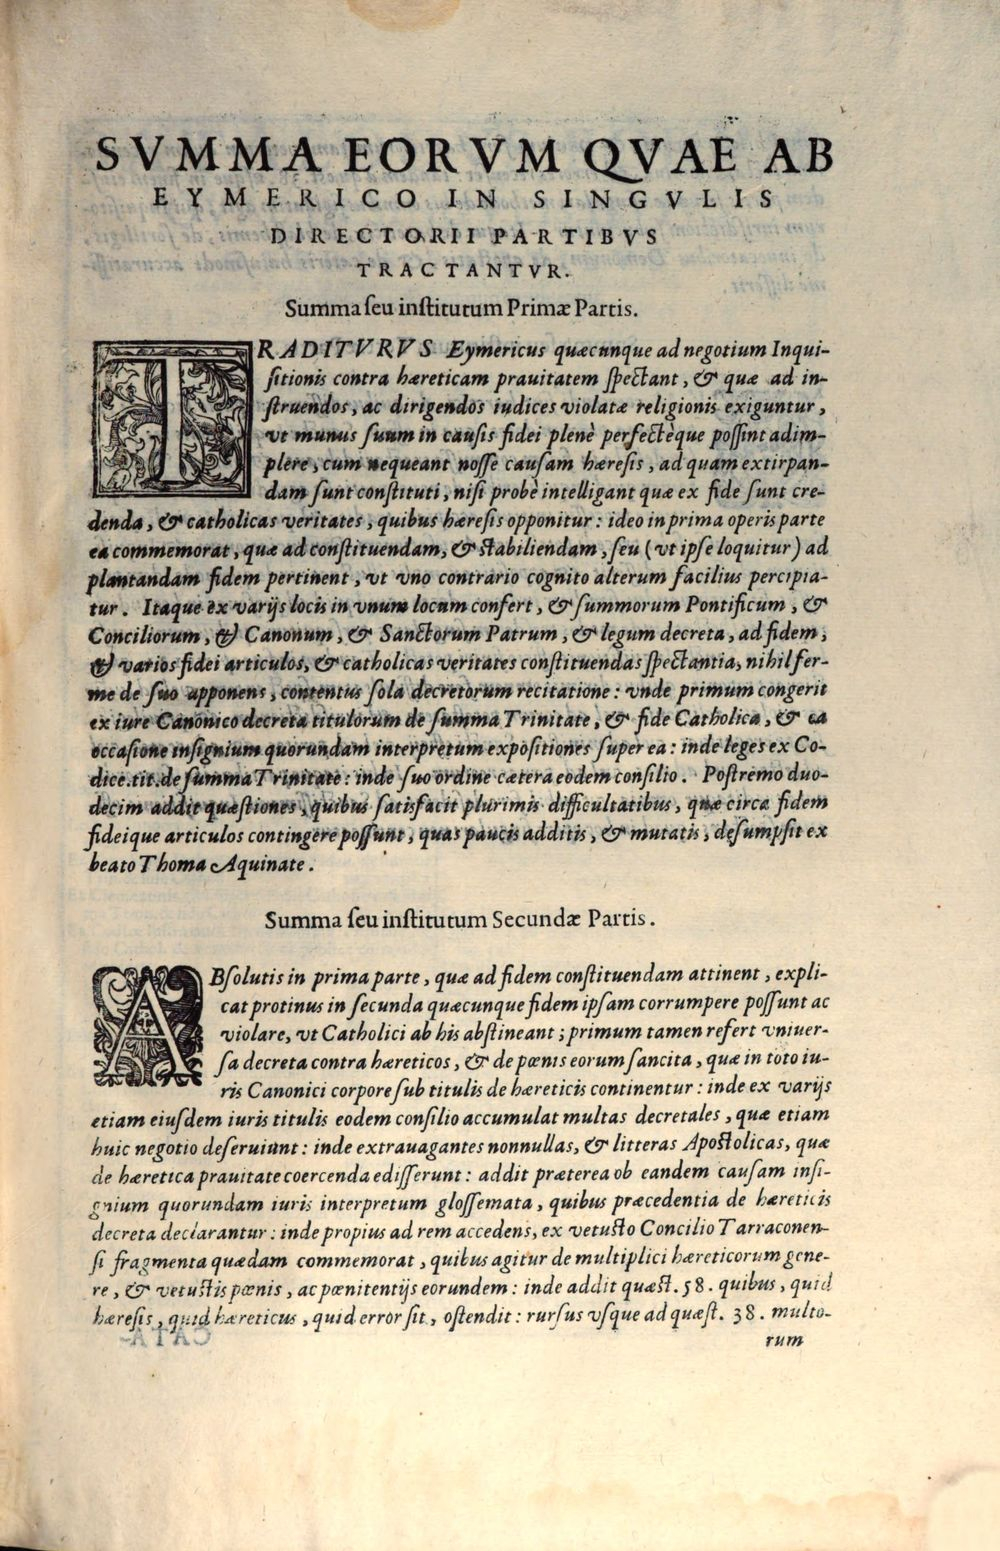 SVMMA EORVM QVAE AB
EYMERICO IN SINGVLIS
DIRECTORII PARTIBVS
TRACTANTVR.
Summa seu institutum Primæ Partis.
TRADITVRVS Eymericus quæcunque ad negotium Inqui-
sitionis contra hæreticam prauitatem spectant, & quæ ad in-
struendos, ac dirigendos iudices violatæ religionis exiguntur,
vt munus suum in causis fidei plenè perfectèque possint adim-
plere, cum nequeant nosse causam hæresis, ad quam extirpan-
dam sunt constituti, nisi probè intelligant quæ ex fide sunt cre-
denda, & catholicas veritates, quibus hæresis opponitur: ideo in prima operis parte
ea commemorat, quæ ad constituendam, & stabiliendam, seu (vt ipse loquitur) ad
plantandam fidem pertinent, vt vno contrario cognito alterum facilius percipia-
tur. Itaque ex varijs locis in vnum locum confert, & summorum Pontificum, &
Conciliorum, & Canonum, & Sanctorum Patrum, & legum decreta, ad fidem,
& varios fidei articulos, & catholicas veritates constituendas spectantia, nihil fer-
me de suo apponens, contentus sola decretorum recitatione: vnde primum congerit
ex iure Canonico decreta titulorum de summa Trinitate, & fide Catholica, & ea
occasione insignium quorundam interpretum expositiones super ea: inde leges ex Co-
dice.tit.de summa Trinitate: inde suo ordine cætera eodem consilio. Postremo duo-
decim addit quæstiones, quibus satisfacit plurimis difficultatibus, quæ circa fidem
fideique articulos contingere possunt, quas paucis additis, & mutatis, desumpsit ex
beato Thoma Aquinate.
Summa seu institutum Secundæ Partis.
ABsolutis in prima parte, quæ ad fidem constituendam attinent, expli-
cat protinus in secunda quæcunque fidem ipsam corrumpere possunt ac
violare, vt Catholici ab his abstineant; primum tamen refert vniuer-
sa decreta contra hæreticos, & de pœnis eorum sancita, quæ in toto iu-
ris Canonici corpore sub titulis de hæreticis continentur: inde ex varijs
etiam eiusdem iuris titulis eodem consilio accumulat multas decretales, quæ etiam
huic negotio deseruiunt: inde extrauagantes nonnullas, & litteras Apostolicas, quæ
de hæretica prauitate coercenda edisserunt: addit præterea ob eandem causam insi-
gnium quorundam iuris interpretum glossemata, quibus præcedentia de hæreticis
decreta declarantur: inde propius ad rem accedens, ex vetusto Concilio Tarraconen-
si fragmenta quædam commemorat, quibus agitur de multiplici hæreticorum gene-
re, & vetustis pœnis, ac pœnitentijs eorundem: inde addit quæst. 58. quibus, quid
hæresis, quid hæreticus, quid error sit, ostendit: rursus vsque ad quæst. 38. multo-
rum